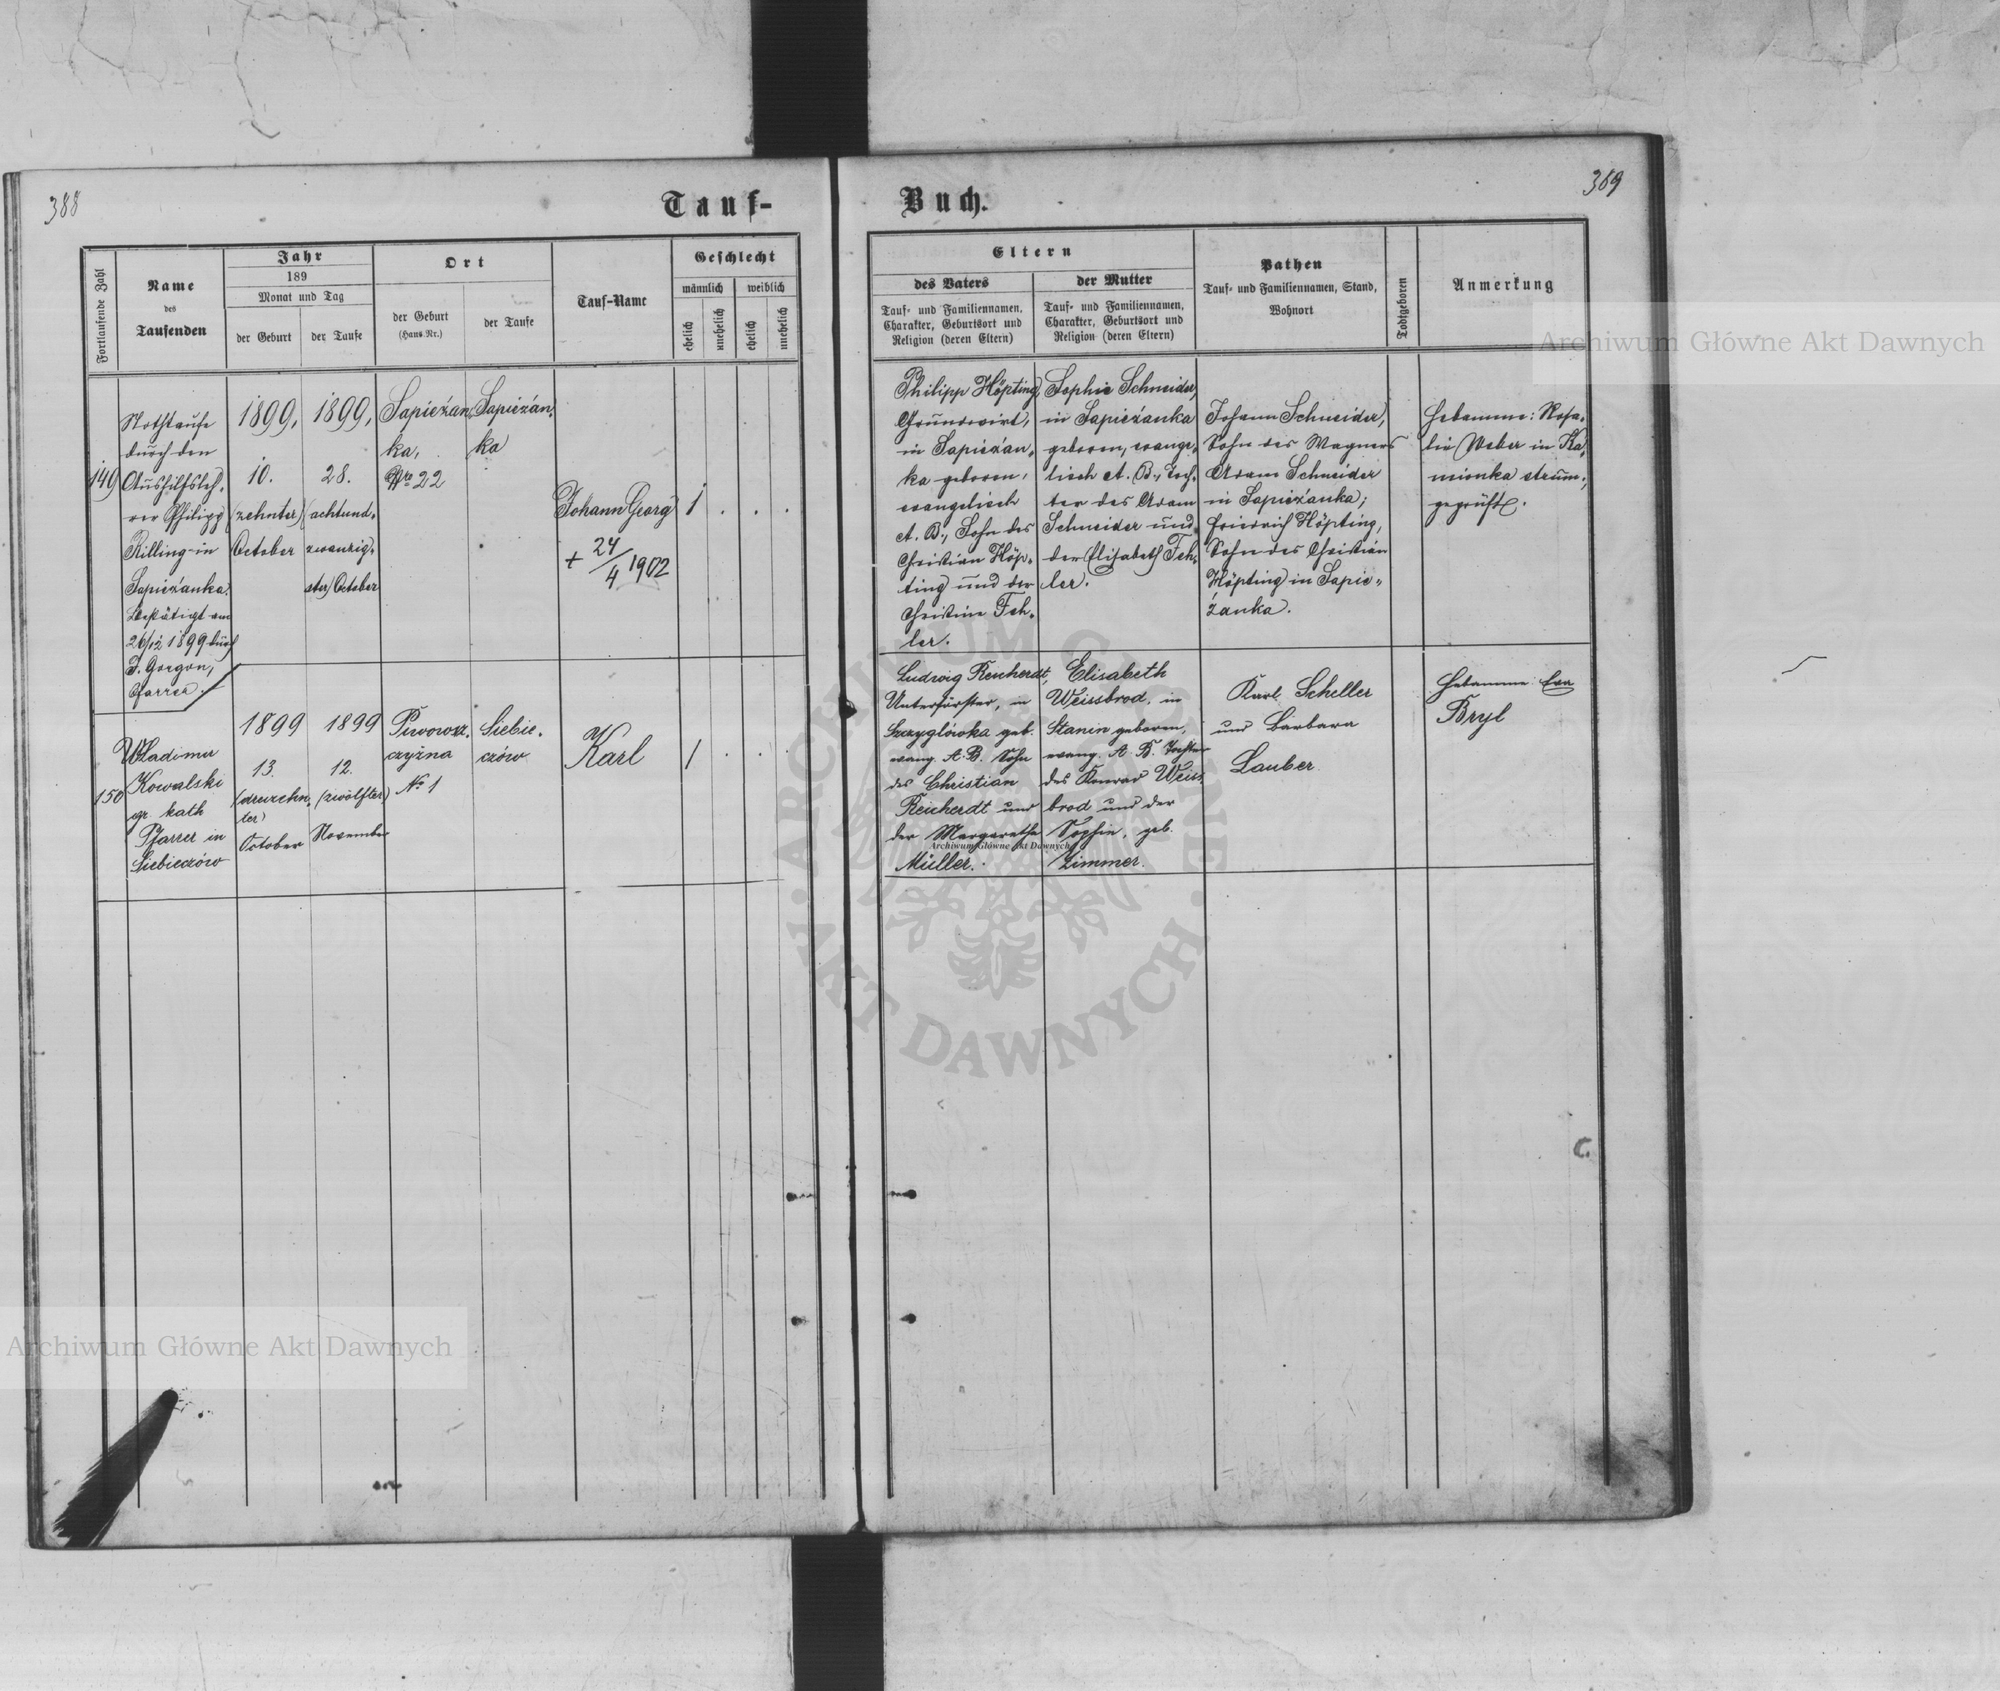 388
Tauf-
Buch.
369
Fortlaufende Zahl
Name
des
Taufenden
Jahr
189
Monat und Tag
der Geburt
der Taufe
Ort
der Geburt
(Haus-Nr.)
der Taufe
Tauf-Name
Geschlecht
männlich
weiblich
ehelich
unehelich
ehelich
unehelich
Eltern
des Vaters
Tauf- und Familiennamen,
Charakter, Geburtsort und
Religion (deren Eltern)
der Mutter
Tauf- und Familiennamen,
Charakter, Geburtsort und
Religion (deren Eltern)
Pathen
Tauf- und Familiennamen, Stand,
Wohnort
Todtgeboren
Anmerkung
149
Nothtaufe
durch den
Aushilfsleh-
rer Philipp
Rilling in
Sapieżanka.
Bestätigt am
26/12 1899 durch
J. Gorgon,
Pfarrer.
1899,
10.
(zehnter)
October
1899,
28.
(achtund-
zwanzig-
ster) October
Sapieżan-
ka,
Nro 22
Sapieżan-
ka
Johann Georg
+ 24/4 1902
1
Philipp Höpting,
Grundwirt,
in Sapieżan-
ka geboren,
evangelisch
A. B., Sohn des
Christian Höp-
ting und der
Christine Feh-
ler.
Sophie Schneider,
in Sapieżanka
geboren, evange-
lisch A. B., Toch-
ter des Adam
Schneider und
der Elisabeth Feh-
ler.
Johann Schneider,
Sohn des Wagners
Adam Schneider
in Sapieżanka;
Friedrich Höpting,
Sohn des Christian
Höpting in Sapie-
żanka.
Hebamme: Rosa-
lie Weber in Ka-
mionka strum.,
geprüft.
150
Wladimir
Kowalski
gr. kath
Pfarrer in
Siebieczów
1899
13.
(dreizehn-
ter)
October
1899
12.
(zwölfter)
November
Piwowsz-
czyzna
No 1
Siebie-
czów
Karl
1
Ludwig Reicherdt,
Unterförster, in
Szczyglówka geb.
evang. A. B. Sohn
des Christian
Reicherdt und
der Margarethe
Müller.
Elisabeth
Weissbrod, in
Stanin geboren,
evang. A. B. Tochter
des Konrad Weiss-
brod und der
Sophie, geb.
Zimmer.
Karl Scheller
und Barbara
Lauber
Hebamme Eva
Bryl
Archiwum Główne Akt Dawnych
Archiwum Główne Akt Dawnych
Archiwum Główne Akt Dawnych
ARCHIWUM GŁÓWNE
AKT DAWNYCH